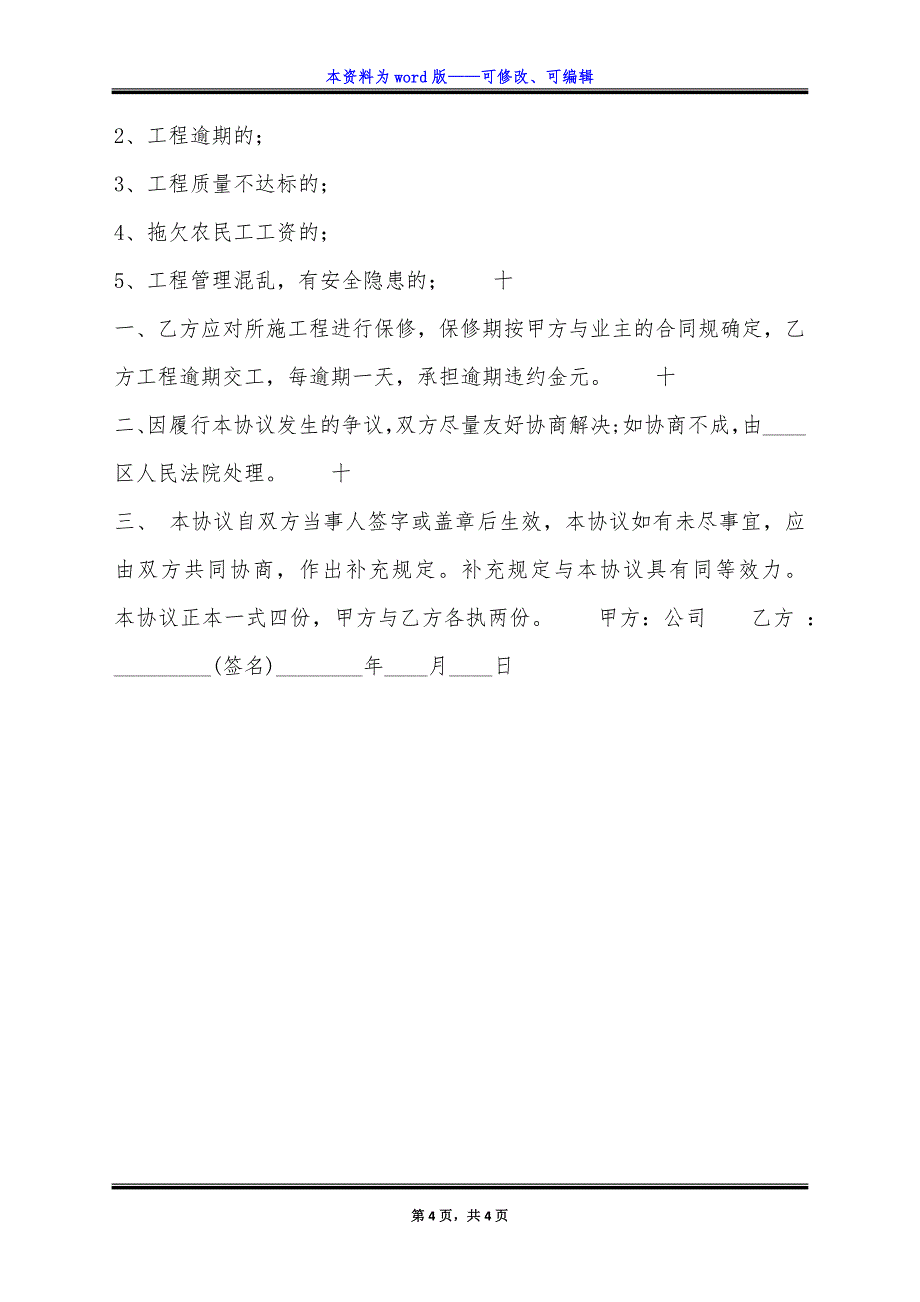 本资料为 word 版——可修改、可编辑
2、工程逾期的;
3、工程质量不达标的;
4、拖欠农民工工资的;
5、工程管理混乱，有安全隐患的; 十
一、乙方应对所施工程进行保修，保修期按甲方与业主的合同规确定，乙
方工程逾期交工，每逾期一天，承担逾期违约金元。 十
二、因履行本协议发生的争议，双方尽量友好协商解决;如协商不成，由____
区人民法院处理。 十
三、 本协议自双方当事人签字或盖章后生效，本协议如有未尽事宜，应
由双方共同协商，作出补充规定。补充规定与本协议具有同等效力。
本协议正本一式四份，甲方与乙方各执两份。 甲方：公司 乙方 ：
_________(签名)________年____月____日
第 4 页，共 4 页